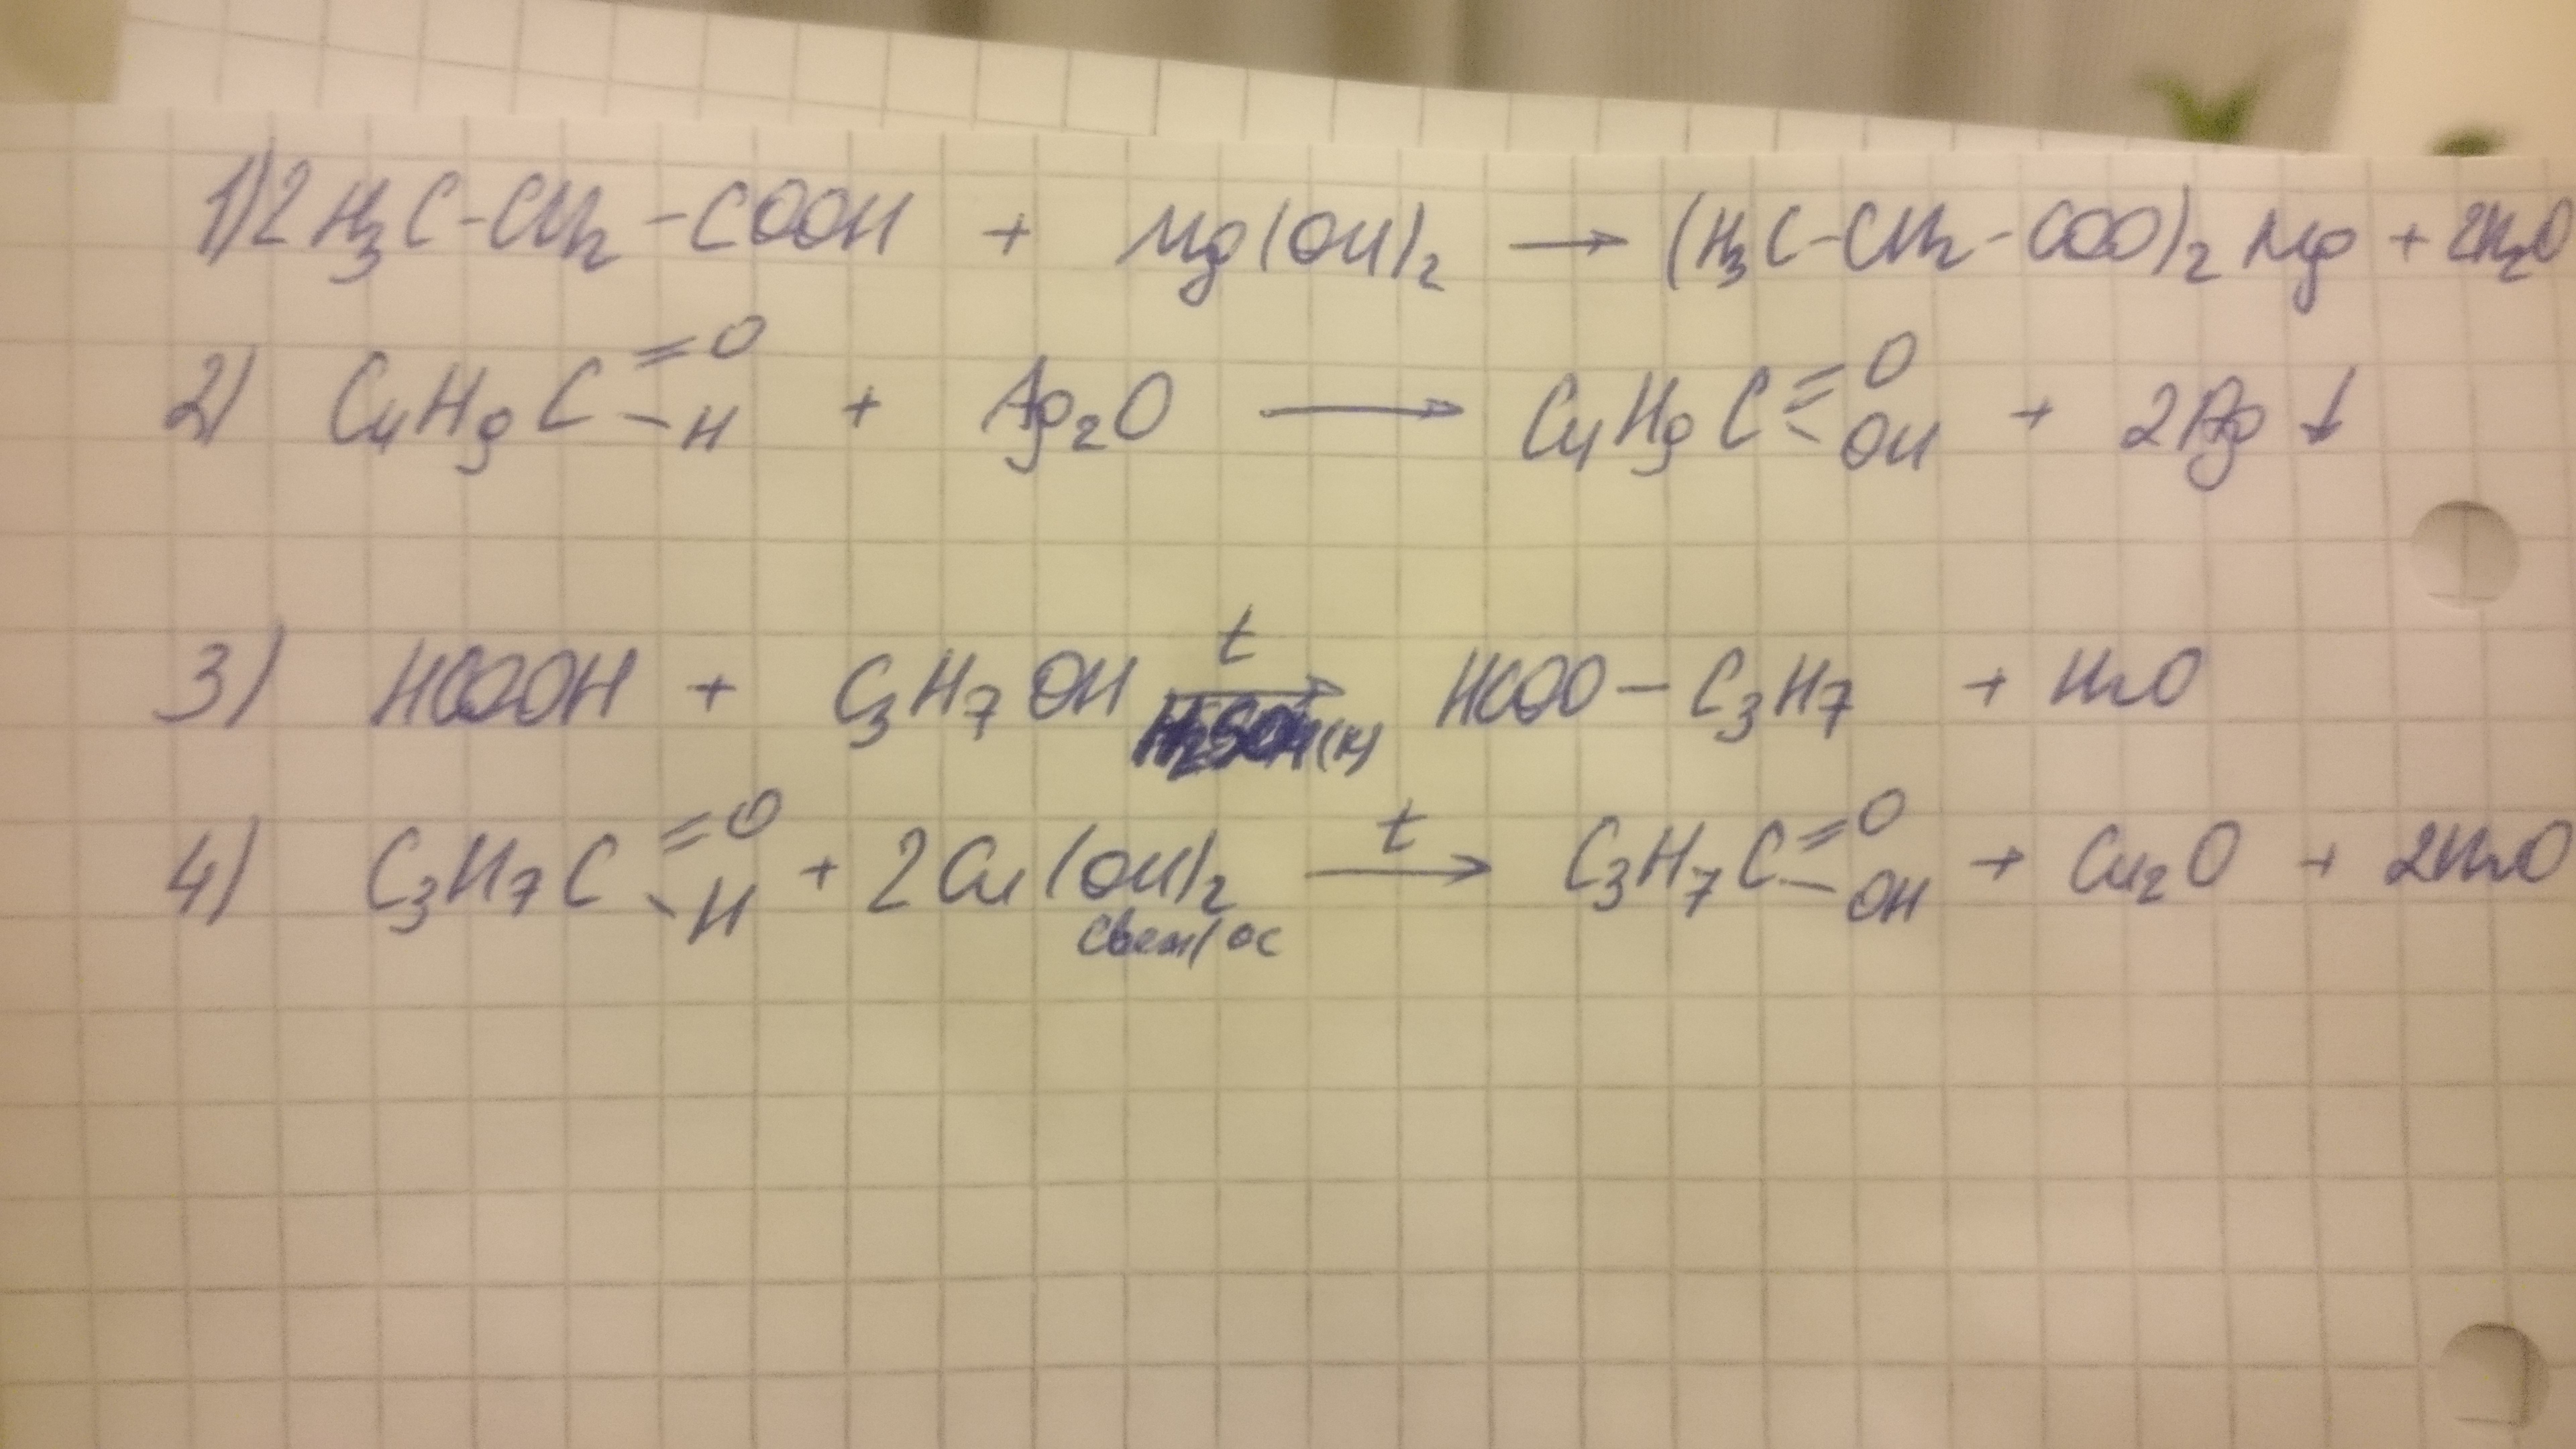 1) 2 H₃C-CH₂-COOH + Mg(OH)₂ → (H₃C-CH₂-COO)₂Mg + 2H₂O
2) C₄H₉C =O -H + Ag₂O → C₄H₉C =O -OH + 2Ag↓
3) HCOOH + C₃H₇OH t → H₂SO₄(к) HCOO-C₃H₇ + H₂O
4) C₃H₇C =O -H + 2Cu(OH)₂ t → C₃H₇C =O -OH + Cu₂O + 2H₂O
свеж/ос